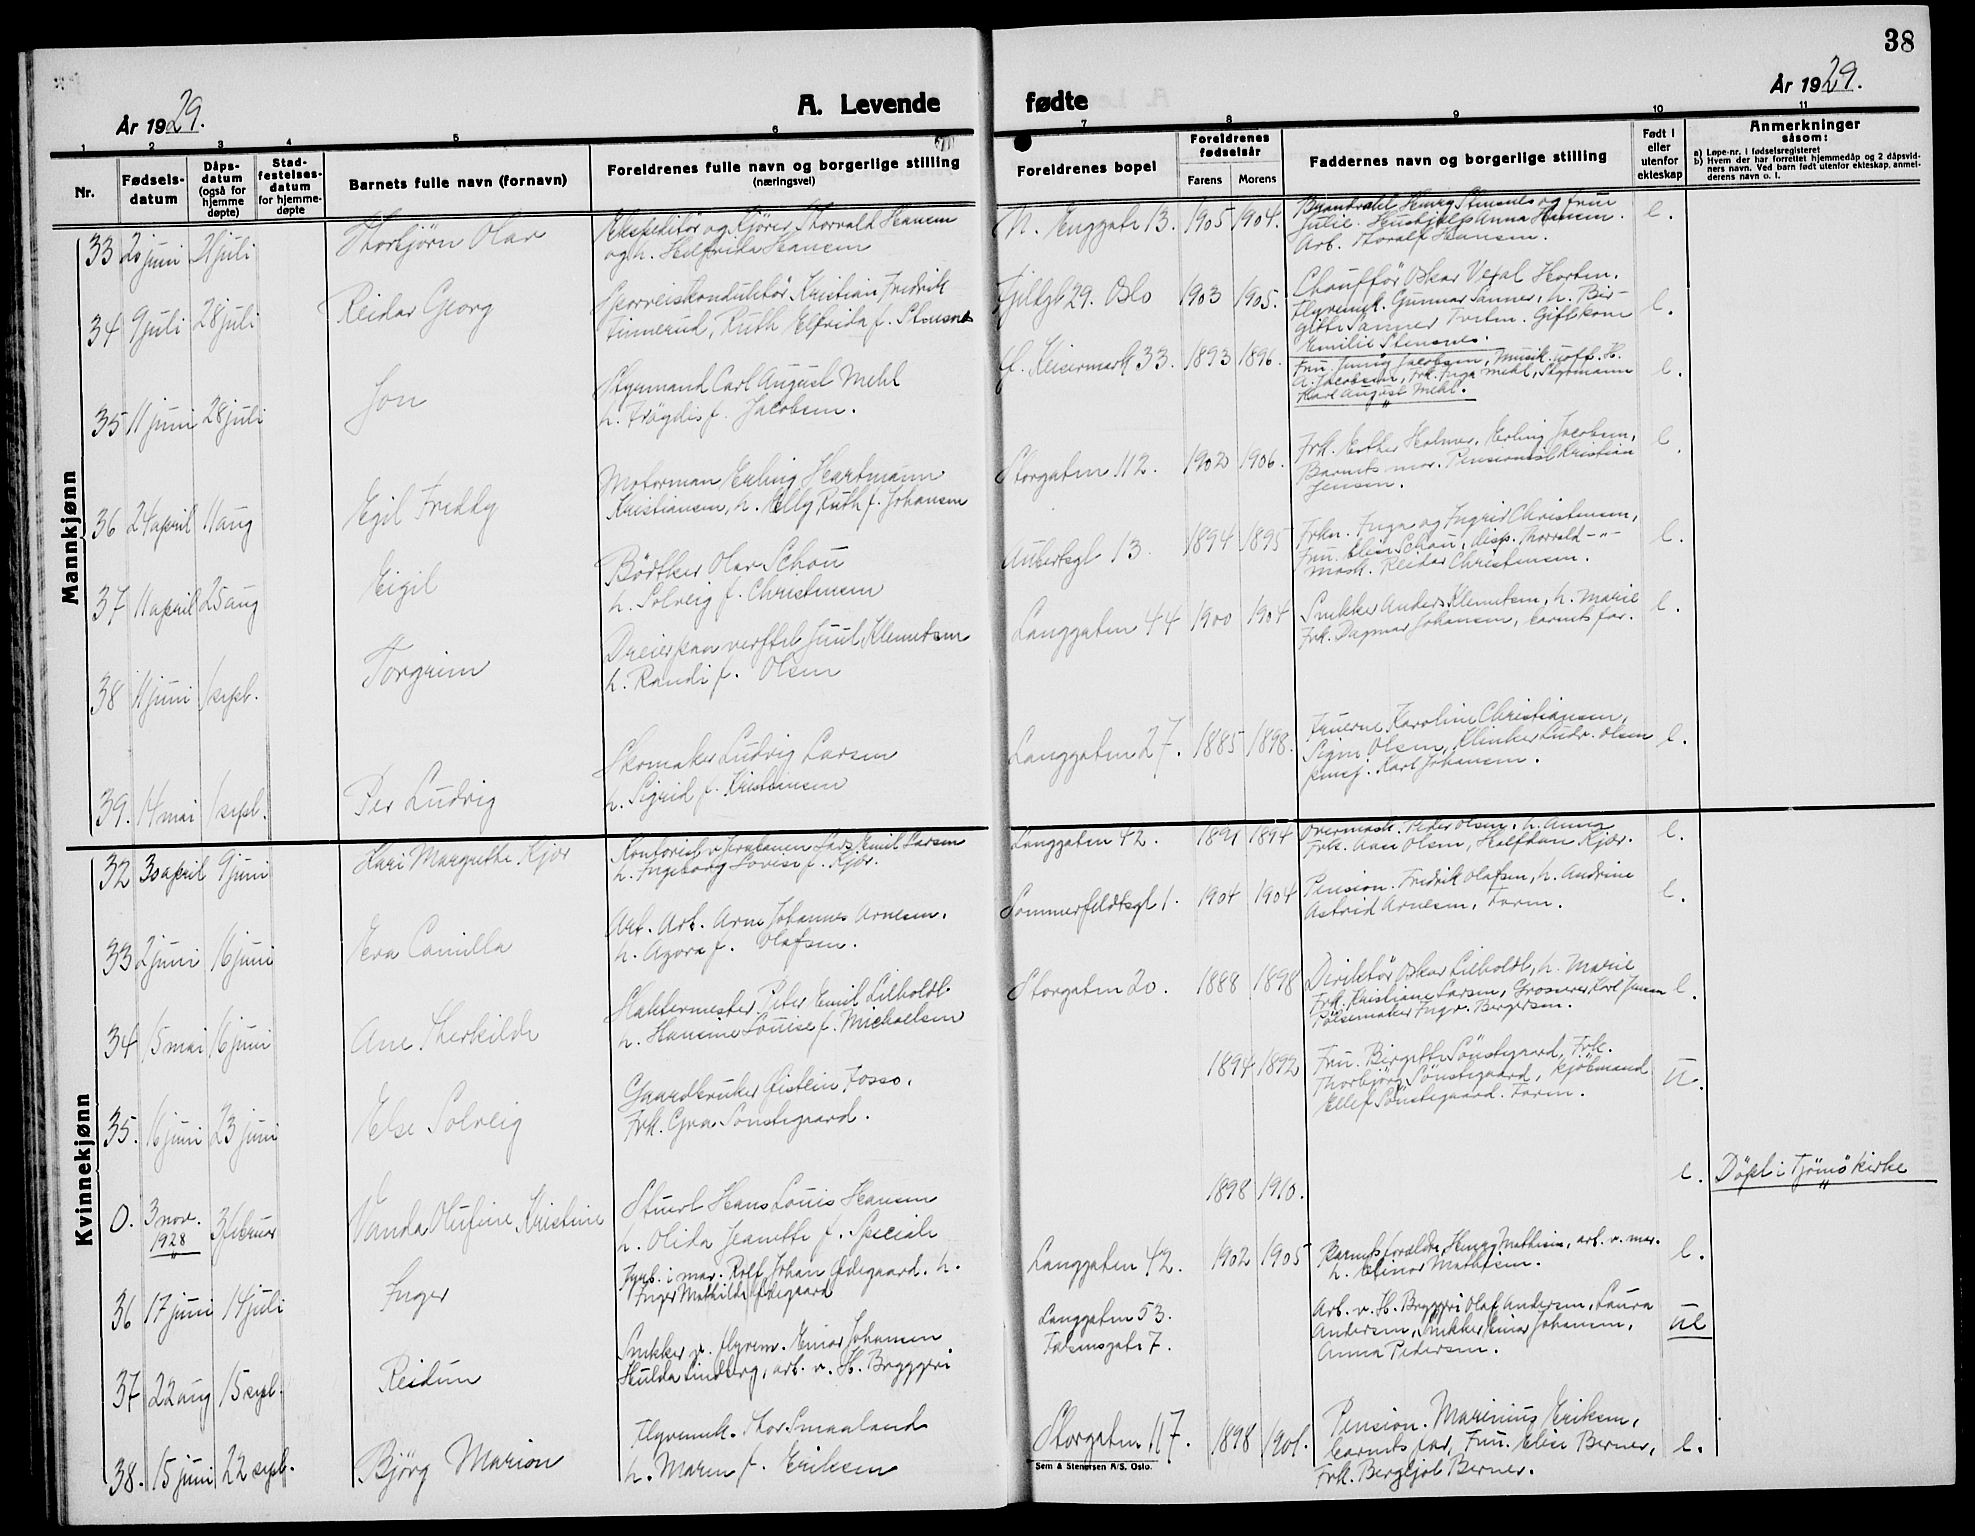 38
År 1929.
A. Levende
fødte
År 1929.
1 2 3 4 5 6 7 8 9 10 11
Nr.
Fødsels-
datum
Dåps-
datum
(også for
hjemme
døpte)
Stad-
festelses-
datum
for hjemme-
døpte
Barnets fulle navn (fornavn)
Foreldrenes fulle navn og borgerlige stilling
(næringsvei)
Foreldrenes bopel
Foreldrenes
fødselsår
Farens Morens
Faddernes navn og borgerlige stilling
Født i
eller
utenfor
ekteskap
Anmerkninger
såsom:
a) Løpe-nr. i fødselsregisteret
b) Hvem der har forrettet hjemmedåp og 2 dåpsvid-
ners navn. Ved barn født utenfor ekteskap, anmel-
derens navn o. l.
Mannkjønn
33 20 juni 21 juli Thorbjörn Olav
Ekspeditör og Kjörer Thorvald Hansen
og h. Hansen
N. Enggate 13. 1905 1904.
Henry Stensnes og frue
Julie. Anna Hansen.
Arb. Thoralf Hansen.
e.
34 9 juli 28 juli Reidar Georg
Sporveiskonduktör Kristian Fredrik
Tinnerud, Ruth Elfrida f. Stensnes
29. Oslo 1903 1905.
Chaufför Oskar Horten.
Flyvemek. Gunnar Sanner, h. Bir-
gitte Sanner Giftekone
Emilie Stensnes.
e.
35 11 juni 28 juli Jon
Styrmand Carl August Mehl
h. Frögdis f. Jacobsen.
Keisermark 33. 1893 1896.
Fru Jenny Jacobsen, Musik. uoff. H.
A. Jacobsen, Frk. Inga Mehl, Styrmann
Karl August Mehl.
e.
36 24 april 11 aug Egil Freddy
Motorman Erling Heartmann
Kristiansen, h. Elly Ruth f. Johansen
Storgaten 112. 1902 1906.
Frk. Esther Holmer, Erling Jacobsen,
Barnets mor. Pensionist Kristian
Jensen.
e
37 11 april 25 aug Eigil
Bödtker Olav Schou
h. Solveig f. Christensen
Aubertsgt 13. 1894 1895
Frkn. Inga og Ingrid Christensen,
Fru Elise Schou, disp. Thorvald -"-
mask. Reidar Christensen.
e.
38 11 juni 1 sept. Torgrim
Dreier paa verftet Juul Klemetsen
h. Randi f. Olsen
Langgaten 44 1900 1904
Snekker Anders Klemetsen, h. Marie
Frk. Dagmar Johansen, barnets far.
e.
39. 14 mai 1 sept. Per Ludvig
Skomaker Ludvig Larsen
h. Sigrid f. Kristensen
Langgaten 27. 1885 1898.
Fruerne Karoline Christiansen,
Signe Olsen, Klinker Ludv. Olsen
Karl Johansen.
e.
Kvinnekjønn
32 30 april 9 juni Kari Margrethe Kjær
Kontorist v. Lars Emil Larsen
h. Ingeborg Lovise f. Kjær.
Langgaten 42. 1891 1894
Overmask. Peder Olsen, h. Anna
Frk. Aase Olsen, Halfdan Kjær.
e.
33 2 juni 16 juni Eva Camilla
Arb. Arne Johannes Arnesen.
h. Agora f. Olafsen.
Sommerfeldtsgt 1. 1904 1904
Pension. Fredrik Olafsen, h. Andrine
Astrid Arnesen, Farm.
e.
34 15 mai 16 juni Ane Therkilde
Slaktermester Peter Emil Lilholdt.
h. Hansine Louise f. Michaelsen
Storgaten 20. 1888 1898
Direktör Oskar Lilholdt, h. Marie
Frk. Kristiane Larsen, Grosserer Karl Jensen
Pölsemaker Ingv. Bergersen.
e.
35. 16 juni 23 juni Else Solveig
Gaardbruker Øistein Fosso.
Frk. Gyra Sönstegaard.
1894 1892
Fru. Birgitte Sönstegaard, Frk.
Thorbjörg Sönstegaard, kjöbmand
Ellef Sönstegaard. Farm.
u.
0. 3 nov. 1928 3 februar Vanda Olufine Kristine
Stuert Hans Louis Hansen
h. Olida Jeanette f. Speciale
1898 1910.
e.
Döpt i Tjömö kirke
36 17 juni 14 juli Inger
i mar. Rolf Johan Ødegaard. h.
Inger Mathilde Ødegaard
Langgaten 42. 1902 1905
Barnets forældre, Henry Mathisen, arb. v. mar.
h. Elinor Mathisen.
e.
37 22 aug 15 sept. Reidun
Snekker v. flyvem. Einar Johansen
Hulda Lindberg, arb. v. H. Bryggeri
Langgaten 53.
Falsensgate 7.
Arb. v. H. Bryggeri Olaf Andersen, Laura
Andersen, Snekker Einar Johansen,
Anna Pedersen.
ue
38. 15 juni 22 sept. Björg Marion
Flyvemek. Thor Smaaland
h. Maren f. Eriksen
Storgaten 117. 1898 1901.
Pension. Marinius Eriksen,
barnets far, Fru. Elise Berner,
Frk. Bergljot Berner.
e.
Sem & Stenersen A/S, Oslo.